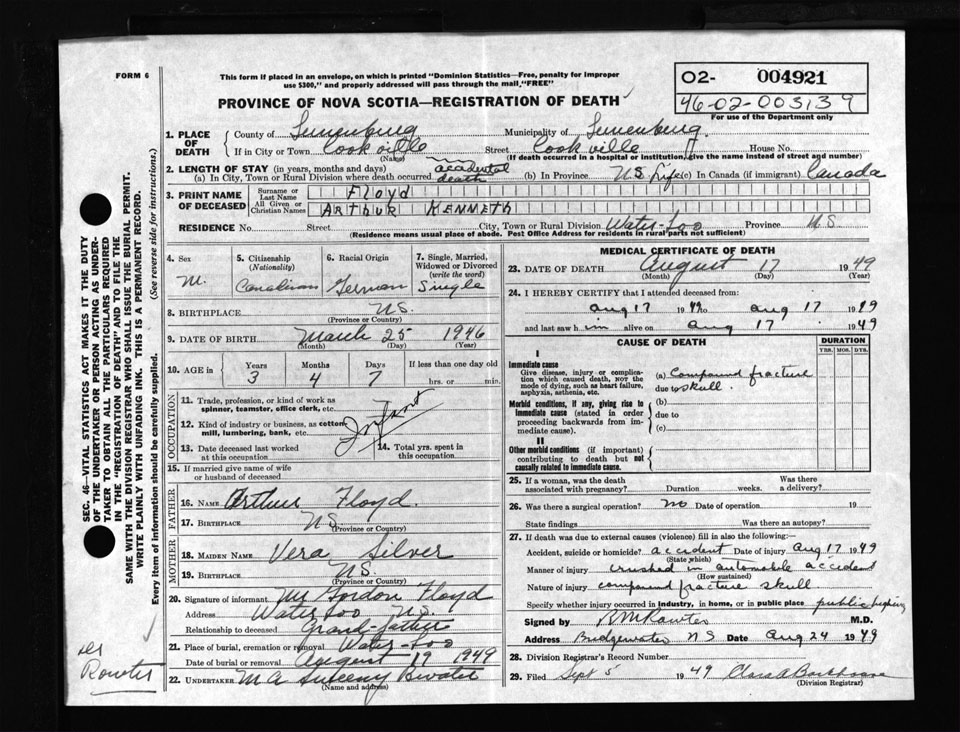 FORM 6
This form if placed in an envelope, on which is printed "Dominion Statistics—Free, penalty for improper
use $300," and properly addressed will pass through the mail "FREE"
PROVINCE OF NOVA SCOTIA—REGISTRATION OF DEATH
02- 004921
46-02-003139
For use of the Department only
SEC. 46—VITAL STATISTICS ACT MAKES IT THE DUTY
OF THE UNDERTAKER OR PERSON ACTING AS UNDER-
TAKER TO OBTAIN ALL THE PARTICULARS REQUIRED
IN THE "REGISTRATION OF DEATH" AND TO FILE THE
SAME WITH THE DIVISION REGISTRAR WHO SHALL ISSUE THE BURIAL PERMIT.
WRITE PLAINLY WITH UNFADING INK. THIS IS A PERMANENT RECORD.
Every item of information should be carefully supplied. (See reverse side for instructions.)
1. PLACE OF DEATH
County of Lunenburg Municipality of Lunenburg.
If in City or Town Cookville Street Cookville House No.
(Name) (If death occurred in a hospital or institution, give the name instead of street and number)
2. LENGTH OF STAY (in years, months and days)
(a) In City, Town or Rural Division where death occurred accidental death (b) In Province NS Life (c) In Canada (if immigrant) Canada
3. PRINT NAME OF DECEASED
Surname or Last Name FLOYD
All Given or Christian Names ARTHUR KENNETH
RESIDENCE No. Street City, Town or Rural Division Water-Loo Province N.S.
(Residence means usual place of abode. Post Office Address for residents in rural parts not sufficient)
4. Sex M.
5. Citizenship (Nationality) Canadian
6. Racial Origin German
7. Single, Married, Widowed or Divorced (write the word) Single
8. BIRTHPLACE NS.
(Province or Country)
9. DATE OF BIRTH March 25 1946
(Month) (Day) (Year)
10. AGE IN Years 3 Months 4 Days 7 If less than one day old hrs. or min.
OCCUPATION
11. Trade, profession, or kind of work as
spinner, teamster, office clerk, etc.
12. Kind of industry or business, as cotton-
mill, lumbering, bank, etc.
Infant
13. Date deceased last worked
at this occupation
14. Total yrs. spent in
this occupation
15. If married give name of wife
or husband of deceased
FATHER
16. NAME Arthur Floyd.
17. BIRTHPLACE NS
(Province or Country)
MOTHER
18. MAIDEN NAME Vera Silver
19. BIRTHPLACE NS.
(Province or Country)
20. Signature of informant Mr Gordon Floyd
Address Water Loo NS.
Relationship to deceased Grand-father
21. Place of burial, cremation or removal Water-Loo
Date of burial or removal August 19 1949
22. UNDERTAKER M A Sweeny Bwater
(Name and address)
MEDICAL CERTIFICATE OF DEATH
23. DATE OF DEATH August 17 1949
(Month) (Day) (Year)
24. I HEREBY CERTIFY that I attended deceased from:
aug 17 1949 to aug 17 1949
and last saw him alive on aug 17 1949
CAUSE OF DEATH
DURATION
YRS. MOS. DYS.
I
Immediate cause
Give disease, injury or complica-
tion which caused death, NOT the
mode of dying, such as heart failure,
asphyxia, asthenia, etc.
(a) Compound fracture
due to skull.
Morbid conditions, if any, giving rise to
immediate cause (stated in order
proceeding backwards from im-
mediate cause).
(b)
due to
(c)
II
Other morbid conditions (if important)
contributing to death but not
causally related to immediate cause.
25. If a woman, was the death
associated with pregnancy? Duration weeks. Was there a delivery?
26. Was there a surgical operation? no Date of operation 19
State findings Was there an autopsy?
27. If death was due to external causes (violence) fill in also the following:
Accident, suicide or homicide? accident Date of injury aug 17 1949
(State which)
Manner of injury crushed in automobile accident
(How sustained)
Nature of injury compound fracture skull
Specify whether injury occurred in industry, in home, or in public place public highway
Signed by M.D.
Address Bridgewater NS Date Aug 24 1949
28. Division Registrar's Record Number
29. Filed Sept 5 1949 Clara A
(Division Registrar)